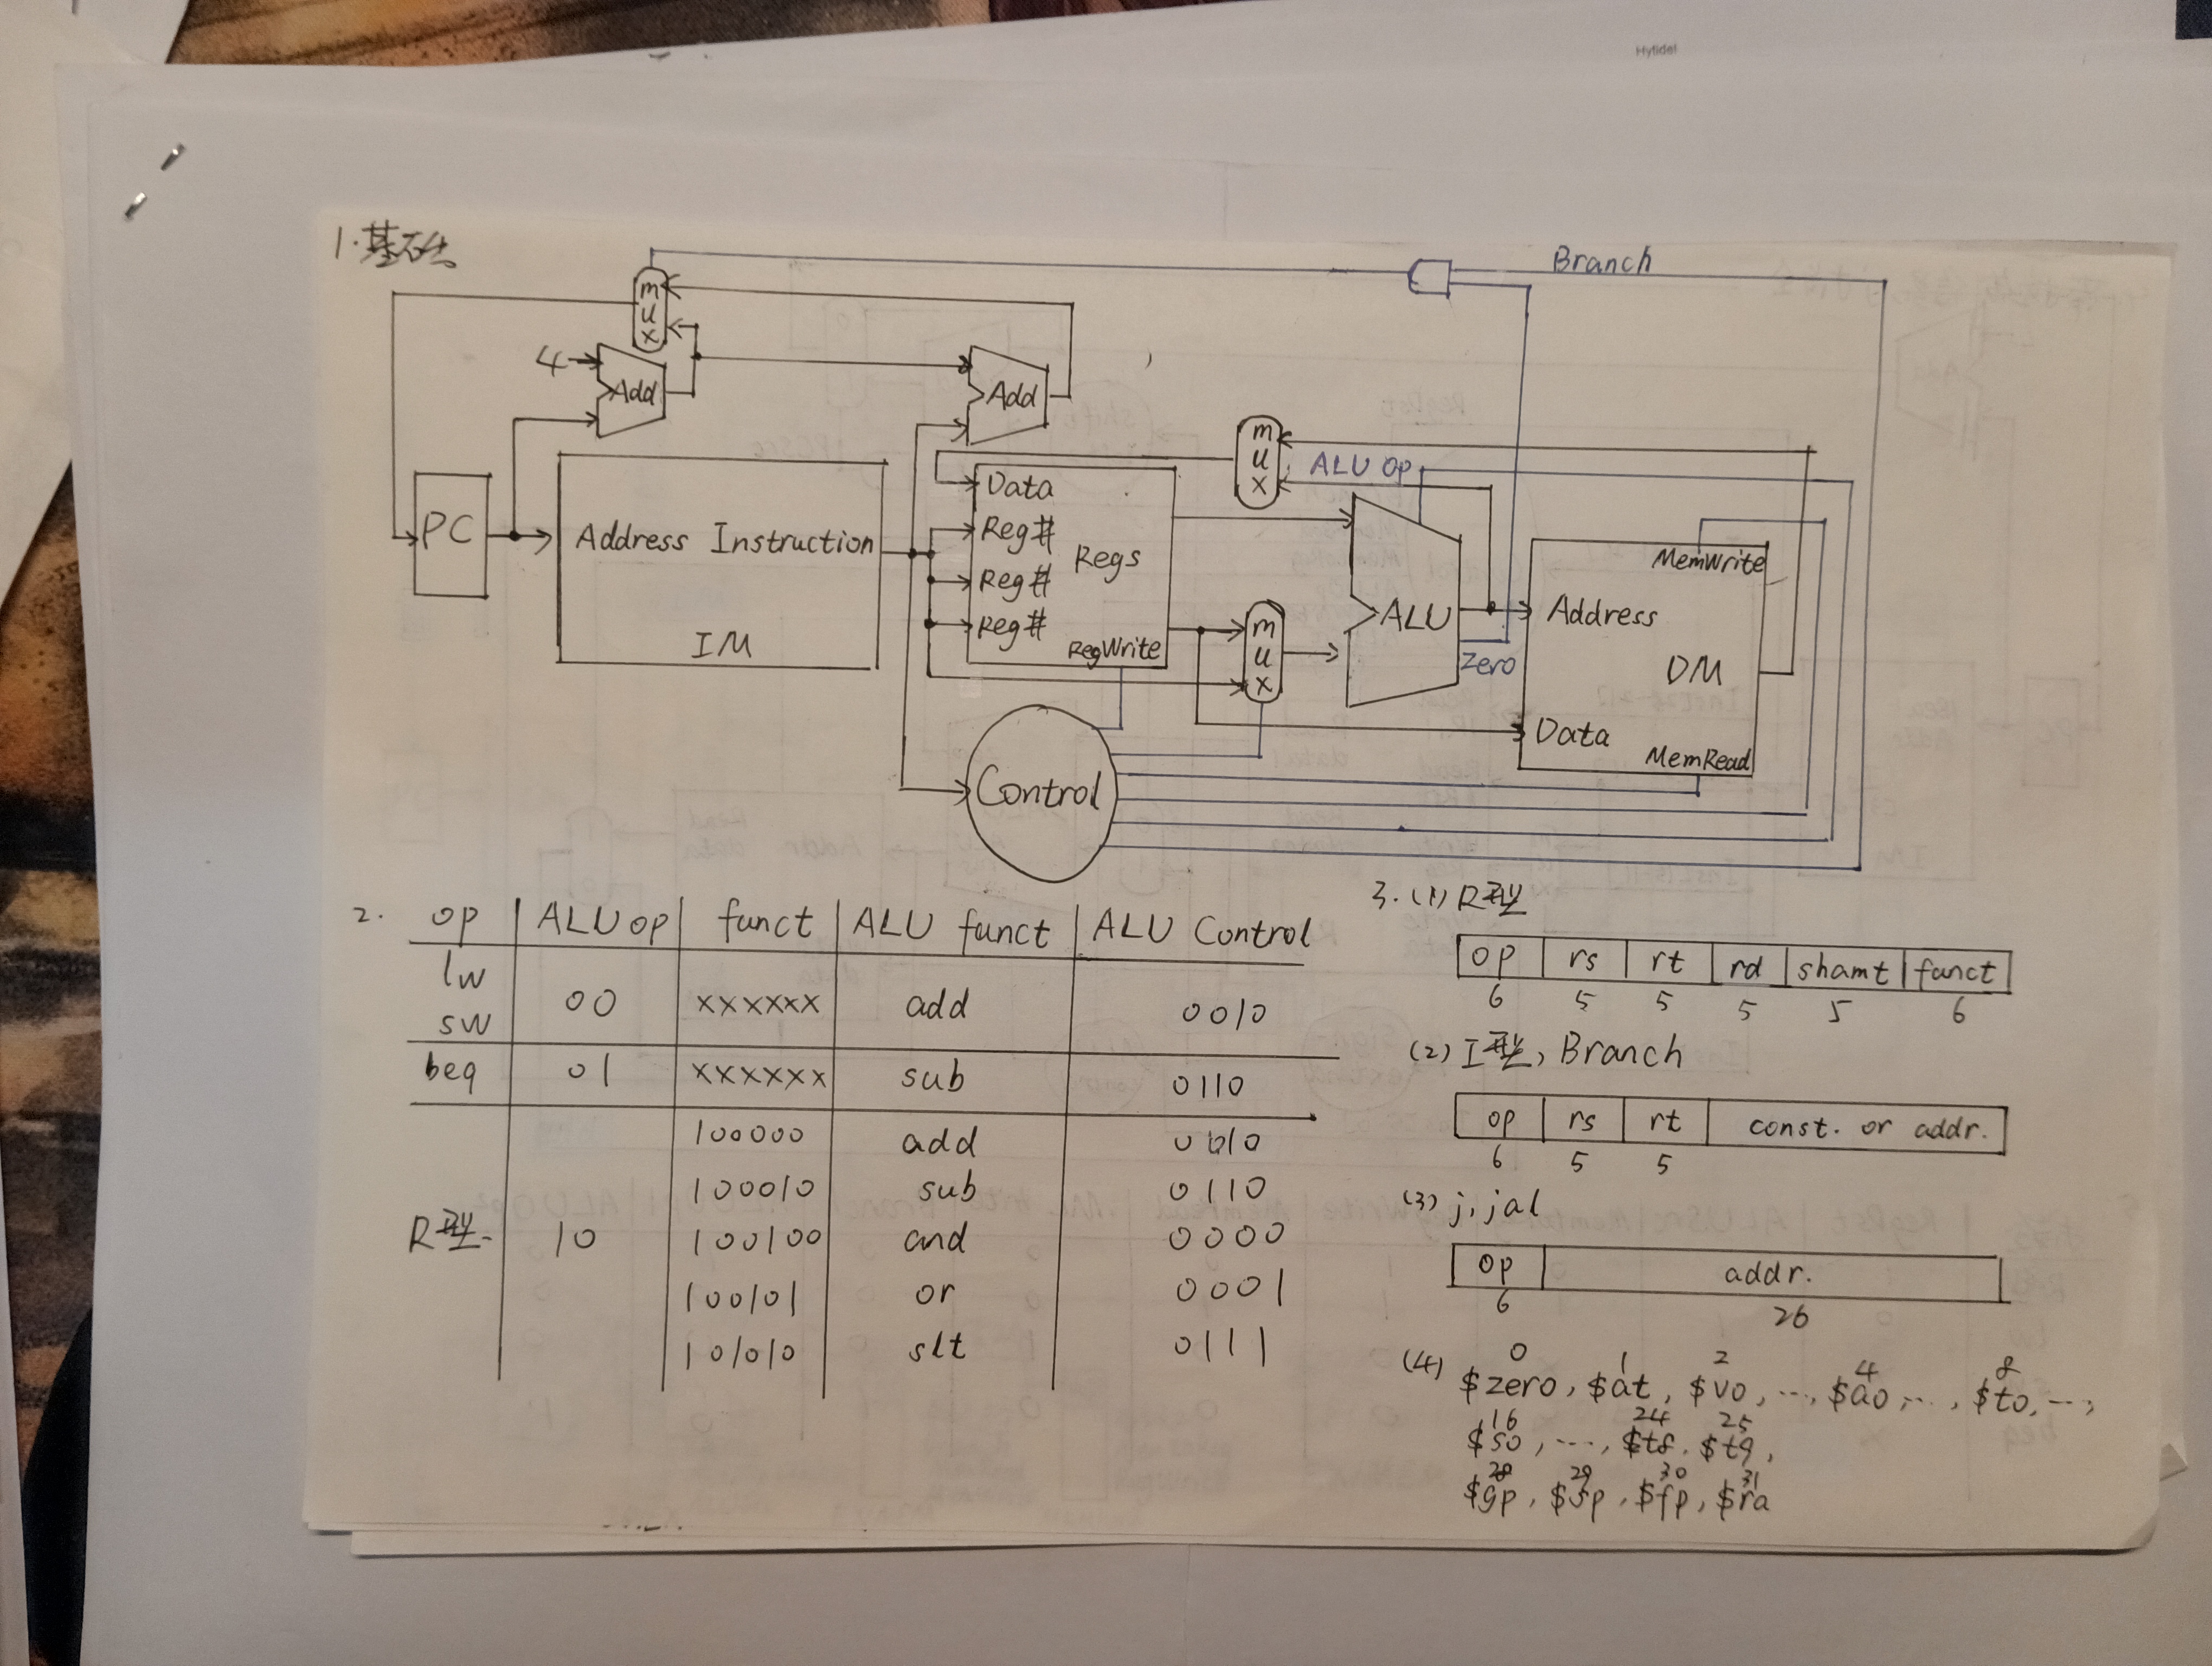 Hytidel
1.基础
Branch
mux
mux
4
Add
Add
ALU op
PC
Address Instruction
IM
Data
Reg#
Reg#
Reg#
Regs
RegWrite
mux
ALU
Zero
MemWrite
Address
DM
Data
MemRead
Control
2. op | ALU op | funct | ALU funct | ALU Control
lw
sw 00 xxxxxx add 0010
beq 01 xxxxxx sub 0110
100000 add 0010
100010 sub 0110
R型. 10 100100 and 0000
100101 or 0001
101010 slt 0111
3. (1) R型
op | rs | rt | rd | shamt | funct
6 5 5 5 5 6
(2) I型, Branch
op | rs | rt | const. or addr.
6 5 5
(3) j, jal
op | addr.
6 26
0 1 2 4 8
(4) $zero, $at, $v0, ..., $a0, ..., $t0, ...,
16 24 25
$s0, ..., $t8, $t9,
28 29 30 31
$gp, $sp, $fp, $ra